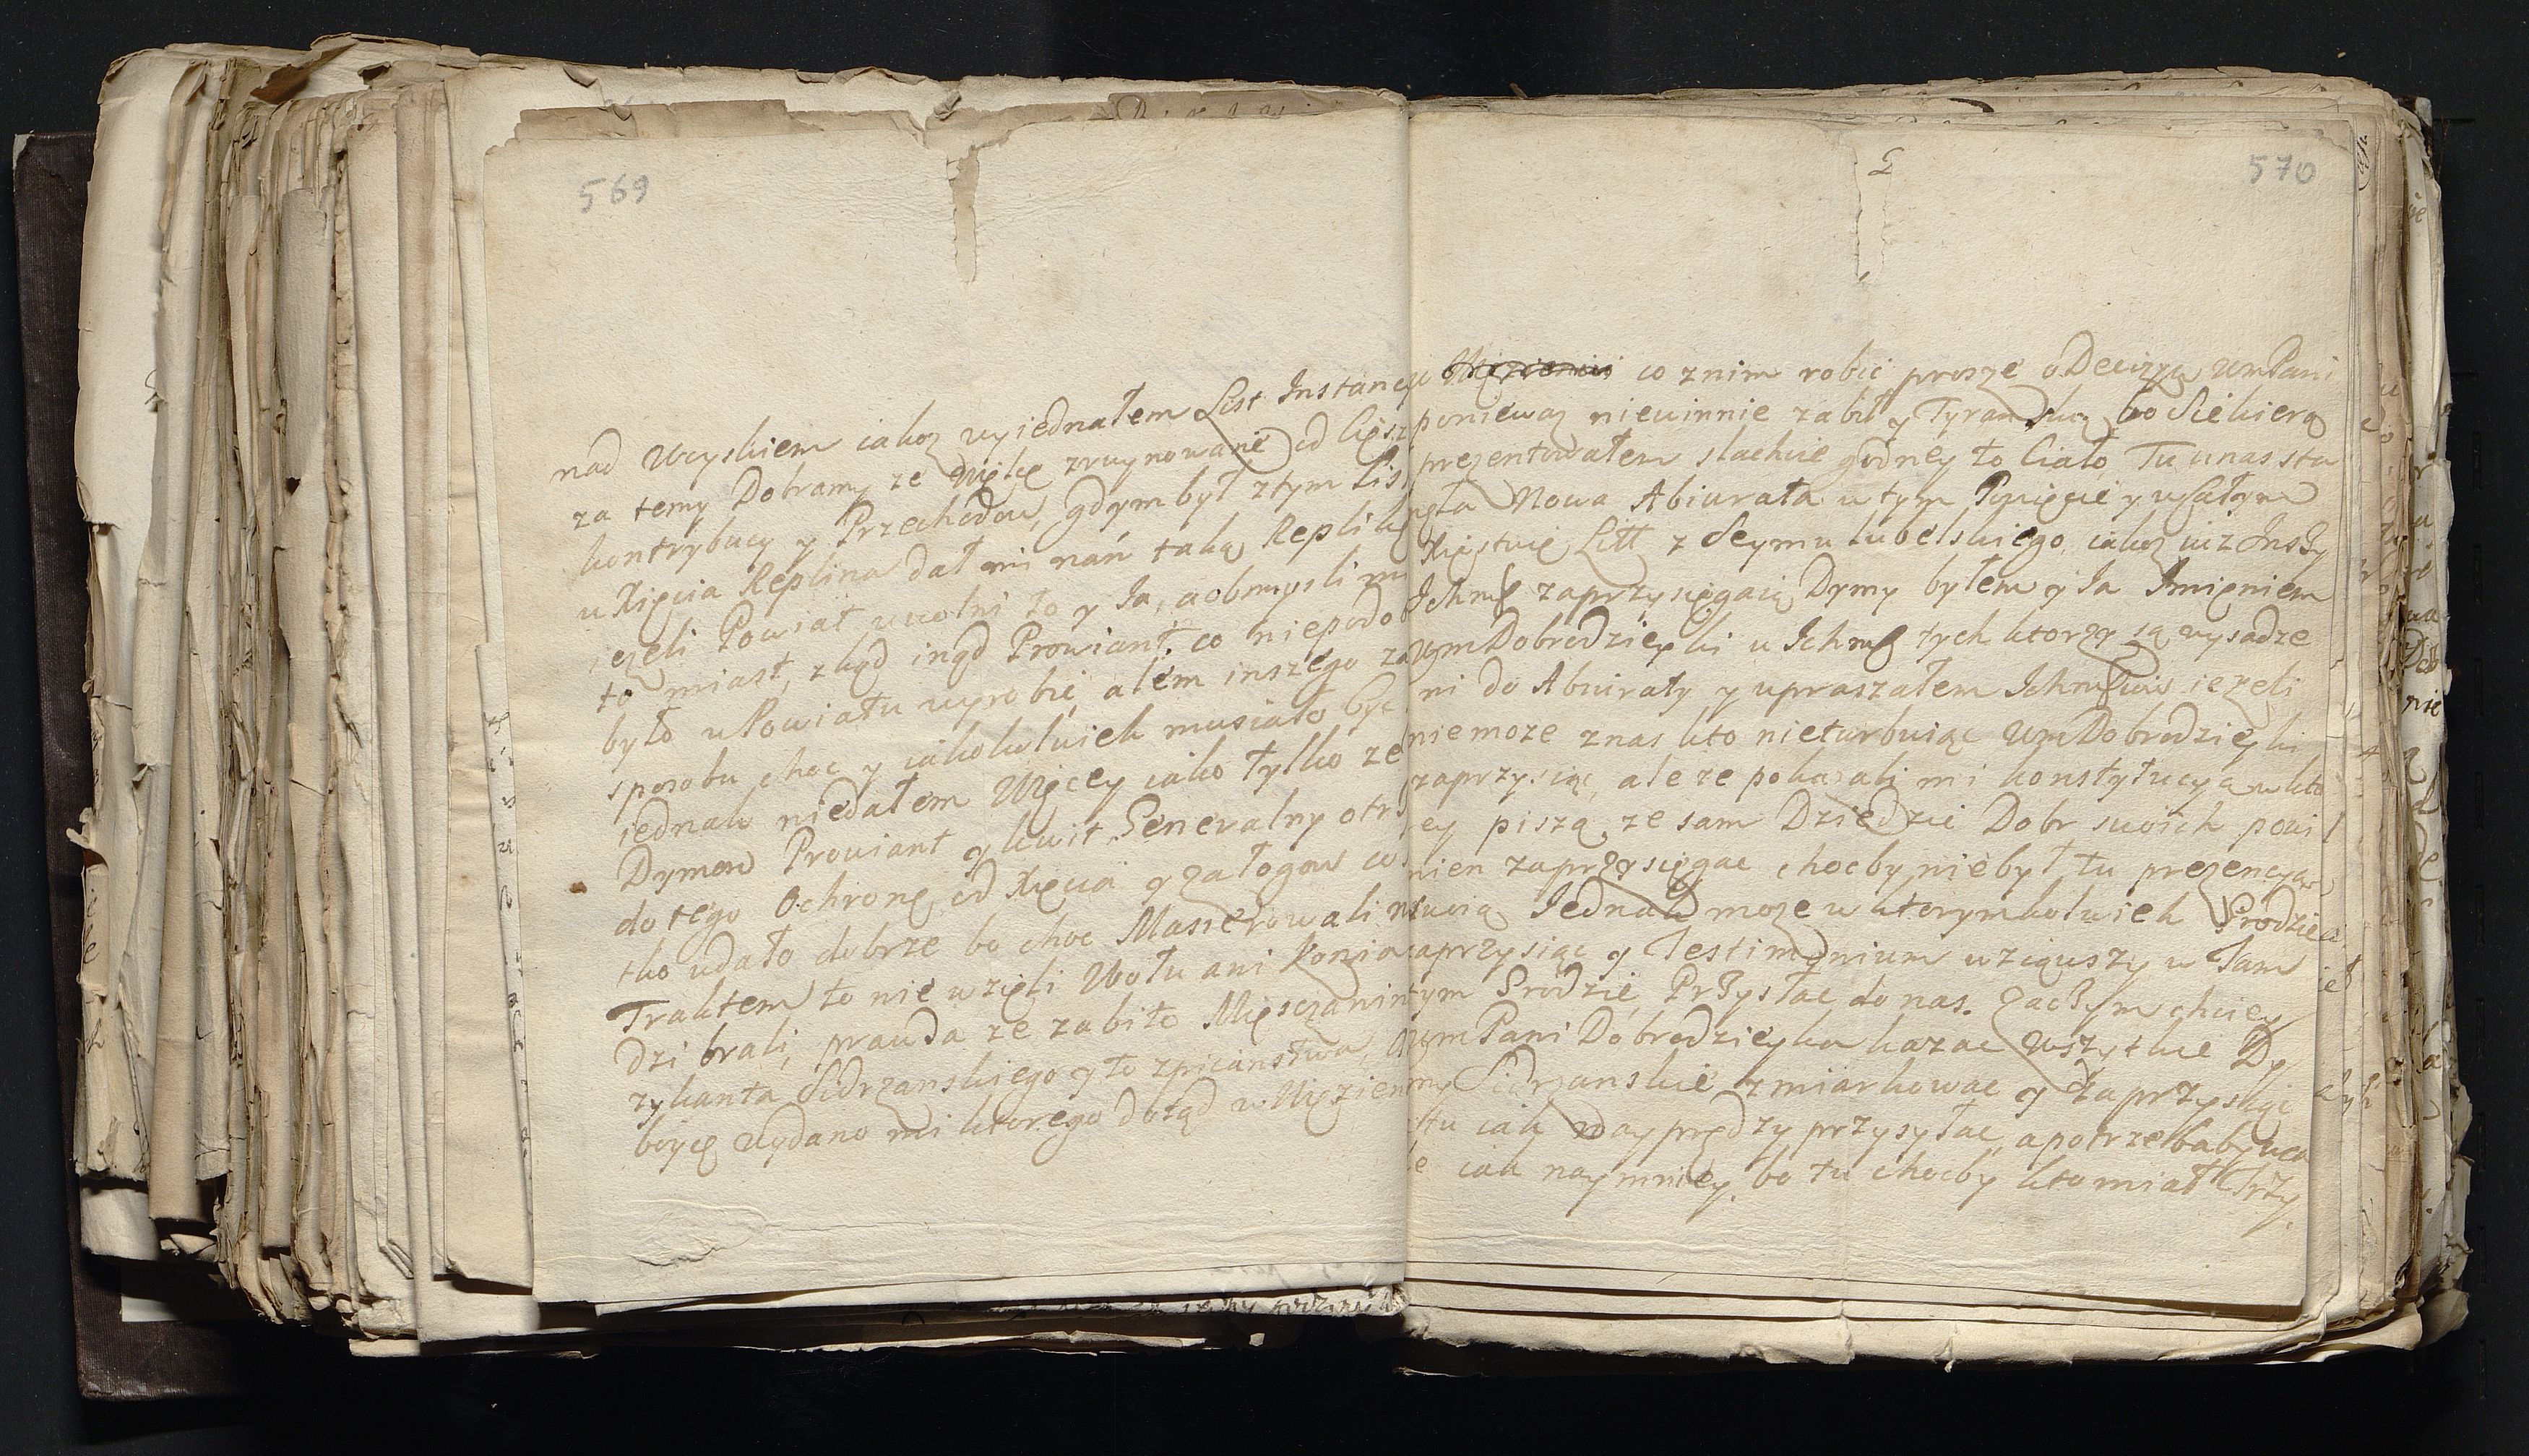 569
nad Woyskiem iakoz wyiednałem List Instancy
za temy Dobramy ze Wielce zruynowane od
kontrybucy y Przechodow, gdym był ztym Lis
u Xięcia Replina dał mi nań taką Replikę
iezeli Powiat uwolni to y Ia, a obmysli mi
to miast, zkąd inąd Prowiant. co niepodob
było u Powiatu wyrobić, alem inszego za
sposobu choc y iakokolwiek musiało byc
iednak niedałem Więcey iako tylko ze
Dymow Prowiant y kwit Generalny otrz
do tego Ochronę od Xięcia y załogow
tko udało dobrze bo choc Maszerowali
Traktem to nie wzięli Wołu ani Konia
dzi brali, prawda ze zabito Miesczanin
zykanta Sidrzanskiego y to zpiianstwa,
boycę wydano mi ktorego dotąd w Więzien
570
co znim robić proszę o Decizyą WmPani
poniewaz niewinnie zabił y Tyransko bo Siekierą
prezentowałem slachcie godney to Ciało Tu unas sta
nęła Nowa Abiurata w tym Powiecie y w Całym
Xięstwie Litt z Seymu lubelskiego iakoz iuz Inszy
Ichmć zaprzysięgaią Dymy byłem y Ia Imieniem
WmDobrodzieyki u Ichmć tych ktorzy są wysadze
ni do Abiuraty y upraszałem Ichmćiow iezeli
niemoze znas kto nieturbuiąc WmDobrodzieyki
zaprzysiąc, ale ze pokazali mi konstytucyą w kto
rey piszą ze sam Dziedzic Dobr swoich powi
nien zaprzysięgac choc by niebył tu prezencyą
swoią Iednak moze w ktorymkolwiek Grodzie
zaprzysiąc y Testimonium wziąwszy w Tam
tym Grodzie Przysłac do nas. zaczym chciey
WmPani Dobrodzieyka kazac Wszytkie Dy
my Sidrzanskie zmiarkowac y zaprzysiąc
tu iak naypredzy przysyłac, a potrzeba by
le iak naymniey. bo tu choc by kto miał Trzy